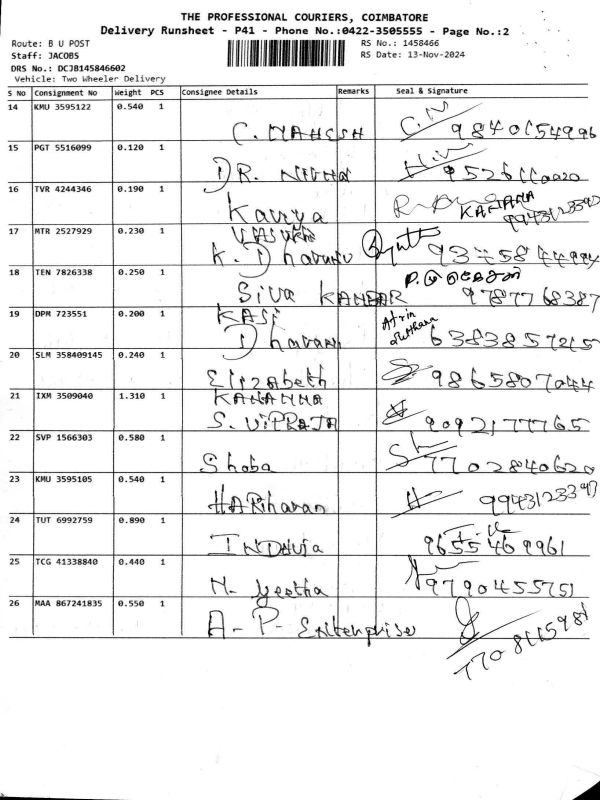 THE PROFESSIONAL COURIERS, COIMBATORE
Delivery Runsheet - P41 - Phone No.:0422-3505555 - Page No.:2
Route: B U POST
RS No.: 1458466
Staff: JACOBS
RS Date: 13-Nov-2024
DRS No.: DCJB145846602
Vehicle: Two Wheeler Delivery
S No Consignment No Weight PCS Consignee Details Remarks Seal & Signature
14 KMU 3595122 0.540 1
C. MAHESH 9840154996
15 PGT 5516099 0.120 1
DR. 9526110020
16 TVR 4244346 0.190 1
Kavya KANANA 9943123397
17 MTR 2527929 0.230 1
VASUKI
K. Dharunu
18 TEN 7826338 0.250 1
Siva KANKAR 9787768387
19 DPM 723551 0.200 1
KASI
Dharani 6383857215
20 SLM 358409145 0.240 1
Elizabeth 9865807044
21 IXM 3509040 1.310 1
KANAMMA
S. 9092177765
22 SVP 1566303 0.580 1
Shoba 7702840620
23 KMU 3595105 0.540 1
HARIharan 9943123397
24 TUT 6992759 0.890 1
INDHUja 9655469961
25 TCG 41338840 0.440 1
N- geetha 9790455751
26 MAA 867241835 0.550 1
A-P- Eniterprise